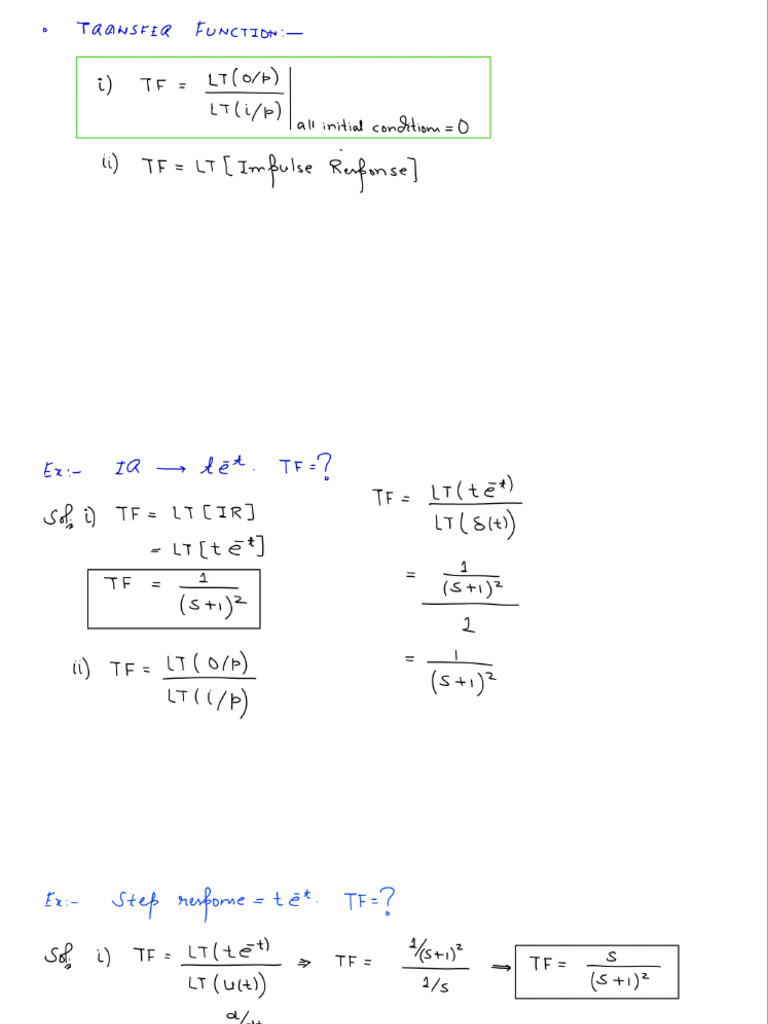 • TRANSFER FUNCTION:—
i) TF = LT(o/p) / LT(i/p) | all initial condition = 0
ii) TF = LT[Impulse Response]
Ex:- IR → te⁻ᵗ. TF=?
Sol: i) TF = LT[IR]
= LT[te⁻ᵗ]
TF = 1/(S+1)²
ii) TF = LT(o/p) / LT(i/p)
TF = LT(te⁻ᵗ) / LT(δ(t))
= 1/(S+1)² / 1
= 1/(S+1)²
Ex:- Step response = te⁻ᵗ. TF=?
Sol: i) TF = LT(te⁻ᵗ) / LT(u(t)) ⇒ TF = 1/(S+1)² / 1/S → TF = S/(S+1)²